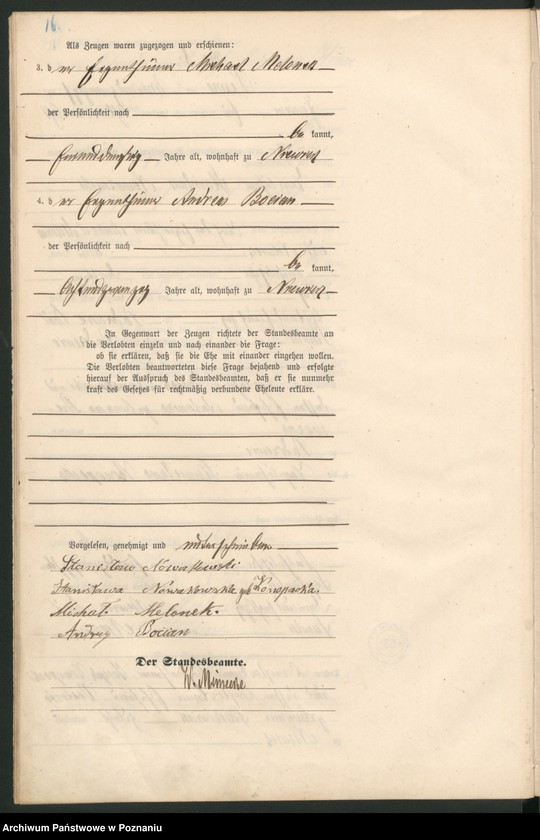 16.
Als Zeugen waren zugezogen und erschienen:
3. der Eigenthümer Michael Melonek
der Persönlichkeit nach
be kannt,
Jahre alt, wohnhaft zu
4. der Eigenthümer Andreas Bocian
der Persönlichkeit nach
be kannt,
achtundzwanzig Jahre alt, wohnhaft zu
In Gegenwart der Zeugen richtete der Standesbeamte an
die Verlobten einzeln und nach einander die Frage:
ob sie erklären, daß sie die Ehe mit einander eingehen wollen.
Die Verlobten beantworteten diese Frage bejahend und erfolgte
hierauf der Ausspruch des Standesbeamten, daß er sie nunmehr
kraft des Gesetzes für rechtmäßig verbundene Eheleute erkläre.
Vorgelesen, genehmigt und unterschrieben
Stanisław Nowakowski
Stanisława Nowakowska geb Konopacka.
Michał Melonek.
Andrzy Bocian
Der Standesbeamte.
Archiwum Państwowe w Poznaniu